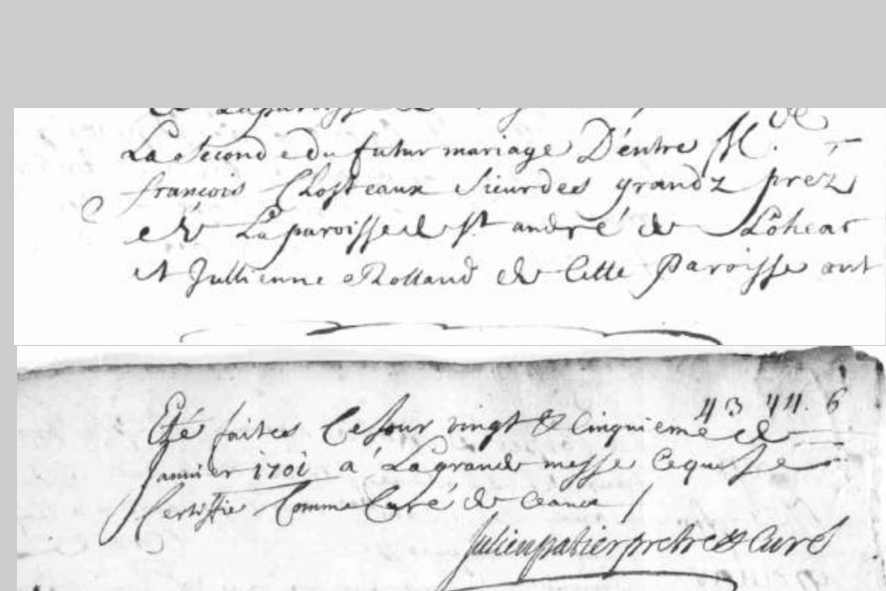 La seconde du futur mariage D'entre M.r
françois Chosteaux sieur des grandz prez
de La paroisse de St andré de Loheac
et Jullienne Rolland de Cette Paroisse ont
43 44. 6
Eté faites Ce Jour vingt & Cinquieme de
Janvier 1701 a La grande messe ce que Je
Certiffie Comme Curé de ceans
Julien patier pretre & Curé